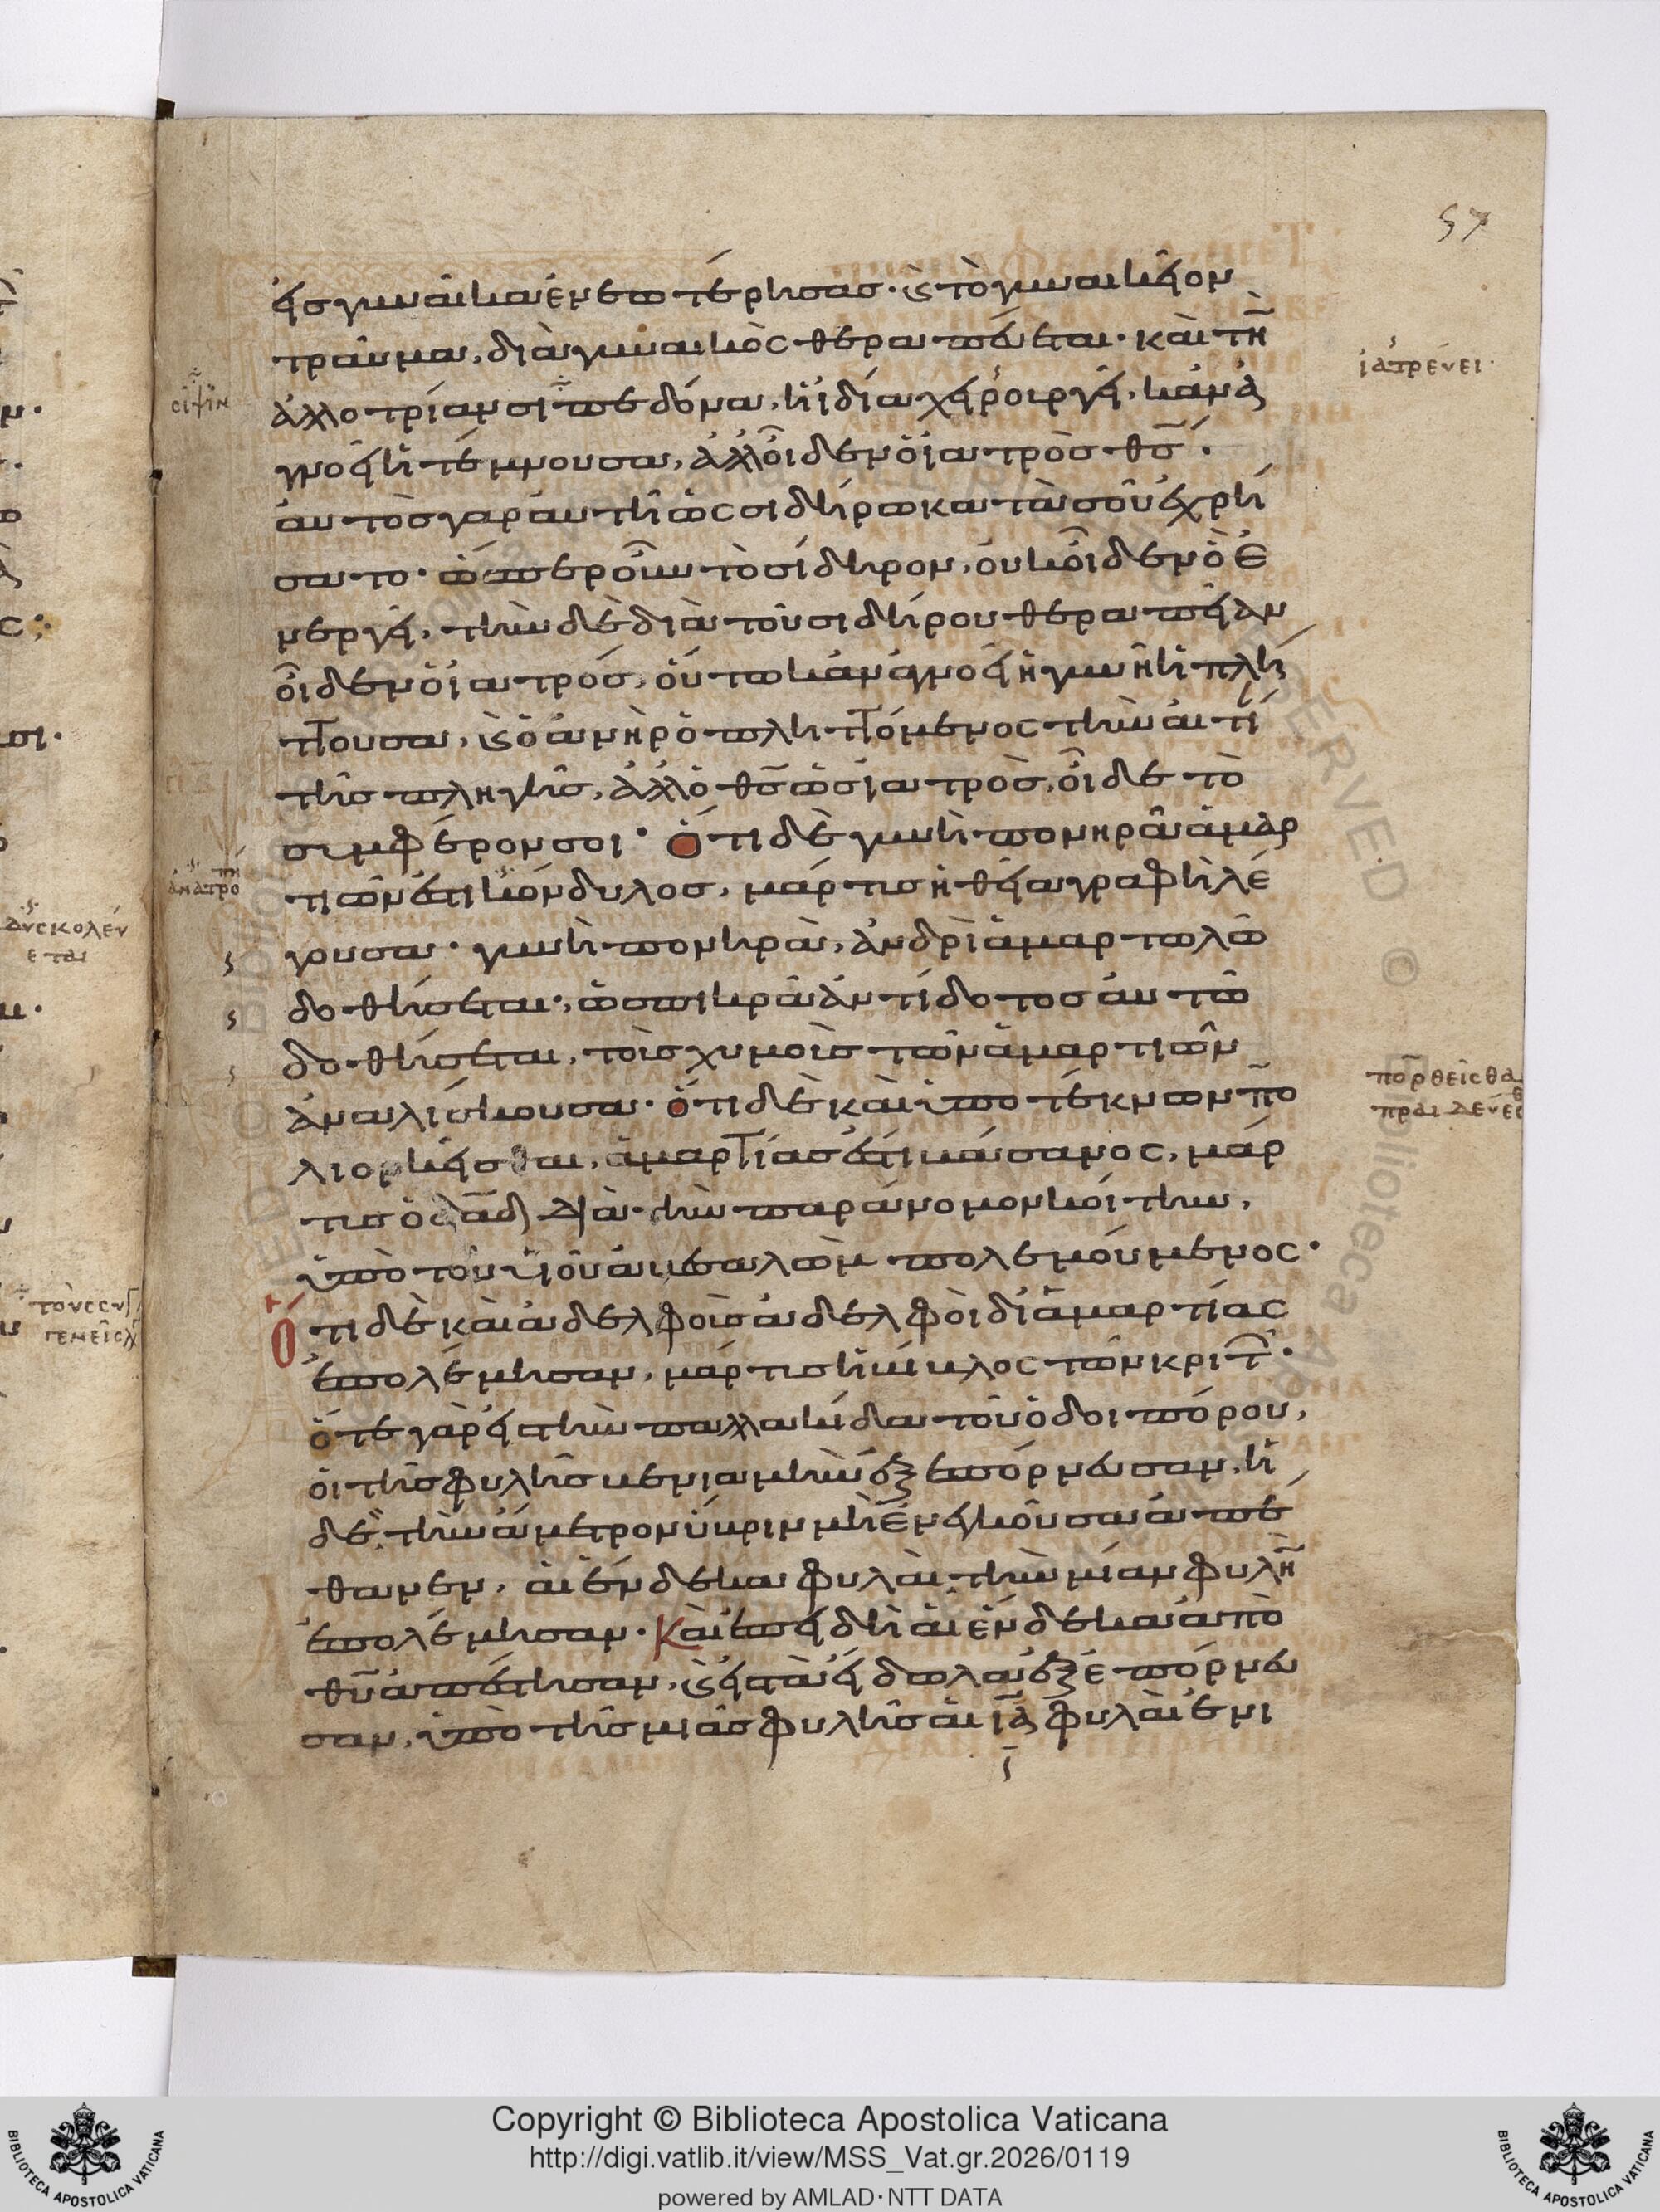 57
εἰς γυναῖκα ἐνεωτέρησας· καὶ τὸ γυναικεῖον
τραῦμα, διὰ γυναικὸς θεραπεύεται· καὶ τὴν
ἀλλοτρίαν σηπεδόνα, ἡ ἰδία χειρουργεῖ, κἂν ἀ
γνοεῖ ἡ τέμνουσα, ἀλλ' οἶδεν ὁ ἰατρὸς θς·
αὐτὸς γὰρ αὐτῆ ὡς σιδήρω κατὰ σοῦ ἐχρή
σατο· ὥσπερ οὖν τὸ σίδηρον, οὐκ οἶδεν ὃ ἐ
νεργεῖ, τὴν δὲ διὰ τοῦ σιδήρου θεραπείαν
οἶδεν ὁ ἰατρός, οὕτω κἂν ἀγνοεῖ ἡ γυνὴ ἡ πλή
ττουσα, καὶ ὁ ἀνὴρ ὁ πληττόμενος τὴν αἰτί
τῆς πληγῆς, ἀλλ' ὁ θς ὡς ἰατρὸς, οἶδε τὸ
συμφέρον σοι· Ὅτι δὲ γυνὴ πονηρὰ ἁμαρ
τιῶν ἐστὶ κόνδυλος, μάρτυς ἡ θεία γραφὴ λέ
γουσα· γυνὴ πονηρὰ, ἀνδρὶ ἁμαρτωλῶ
δοθήσεται·, ὡς πικρὰ ἀντίδοτος αὐτῶ
δοθήσεται, τοῖς χυμοῖς τῶν ἁμαρτιῶν
ἀναλίσκουσα· ὅτι δὲ καὶ ὑπὸ τέκνων πο
λιορκεῖσθαι, ἁμαρτίας ἐστὶ βάσανος, μάρ
τυς ὁ δαδ διὰ τὴν παράνομον κοίτην,
ὑπὸ τοῦ υἱοῦ ἀβεσαλὼμ πολεμούμενος·
Ὅτι δὲ καὶ ἀδελφοῖς ἀδελφοὶ δι' ἁμαρτίας
ἐπολέμησαν, μάρτυς ἡ βίβλος τῶν κριτ·
ὅτε γὰρ εἰς τὴν παλλακίδα τοῦ ὁδοιπόρου,
οἱ τῆς φυλῆς βενιαμὴν ἐξεπόρνευσαν, ἡ
δὲ τὴν ἄμετρον ὕβριν μὴ ἐνεγκοῦσα ἀπέ
θανεν, αἱ ἕνδεκα φυλαὶ τὴν μίαν φυλὴν
ἐπολέμησαν· Καὶ ἐπειδὴ αἱ ἕνδεκα ἀπὸ
θυ ἀπέστησαν, καὶ εἰς τὰ εἴδωλα ἐξεπόρνευ
σαν, ὑπὸ τῆς μιᾶς φυλῆς αἱ ια φυλαὶ ἐνι
ἰατρεύει·
σίψιν
Copyright © Biblioteca Apostolica Vaticana
http://digi.vatlib.it/view/MSS_Vat.gr.2026/0119
powered by AMLAD·NTT DATA
BIBLIOTECA APOSTOLICA VATICANA
BIBLIOTECA APOSTOLICA VATICANA